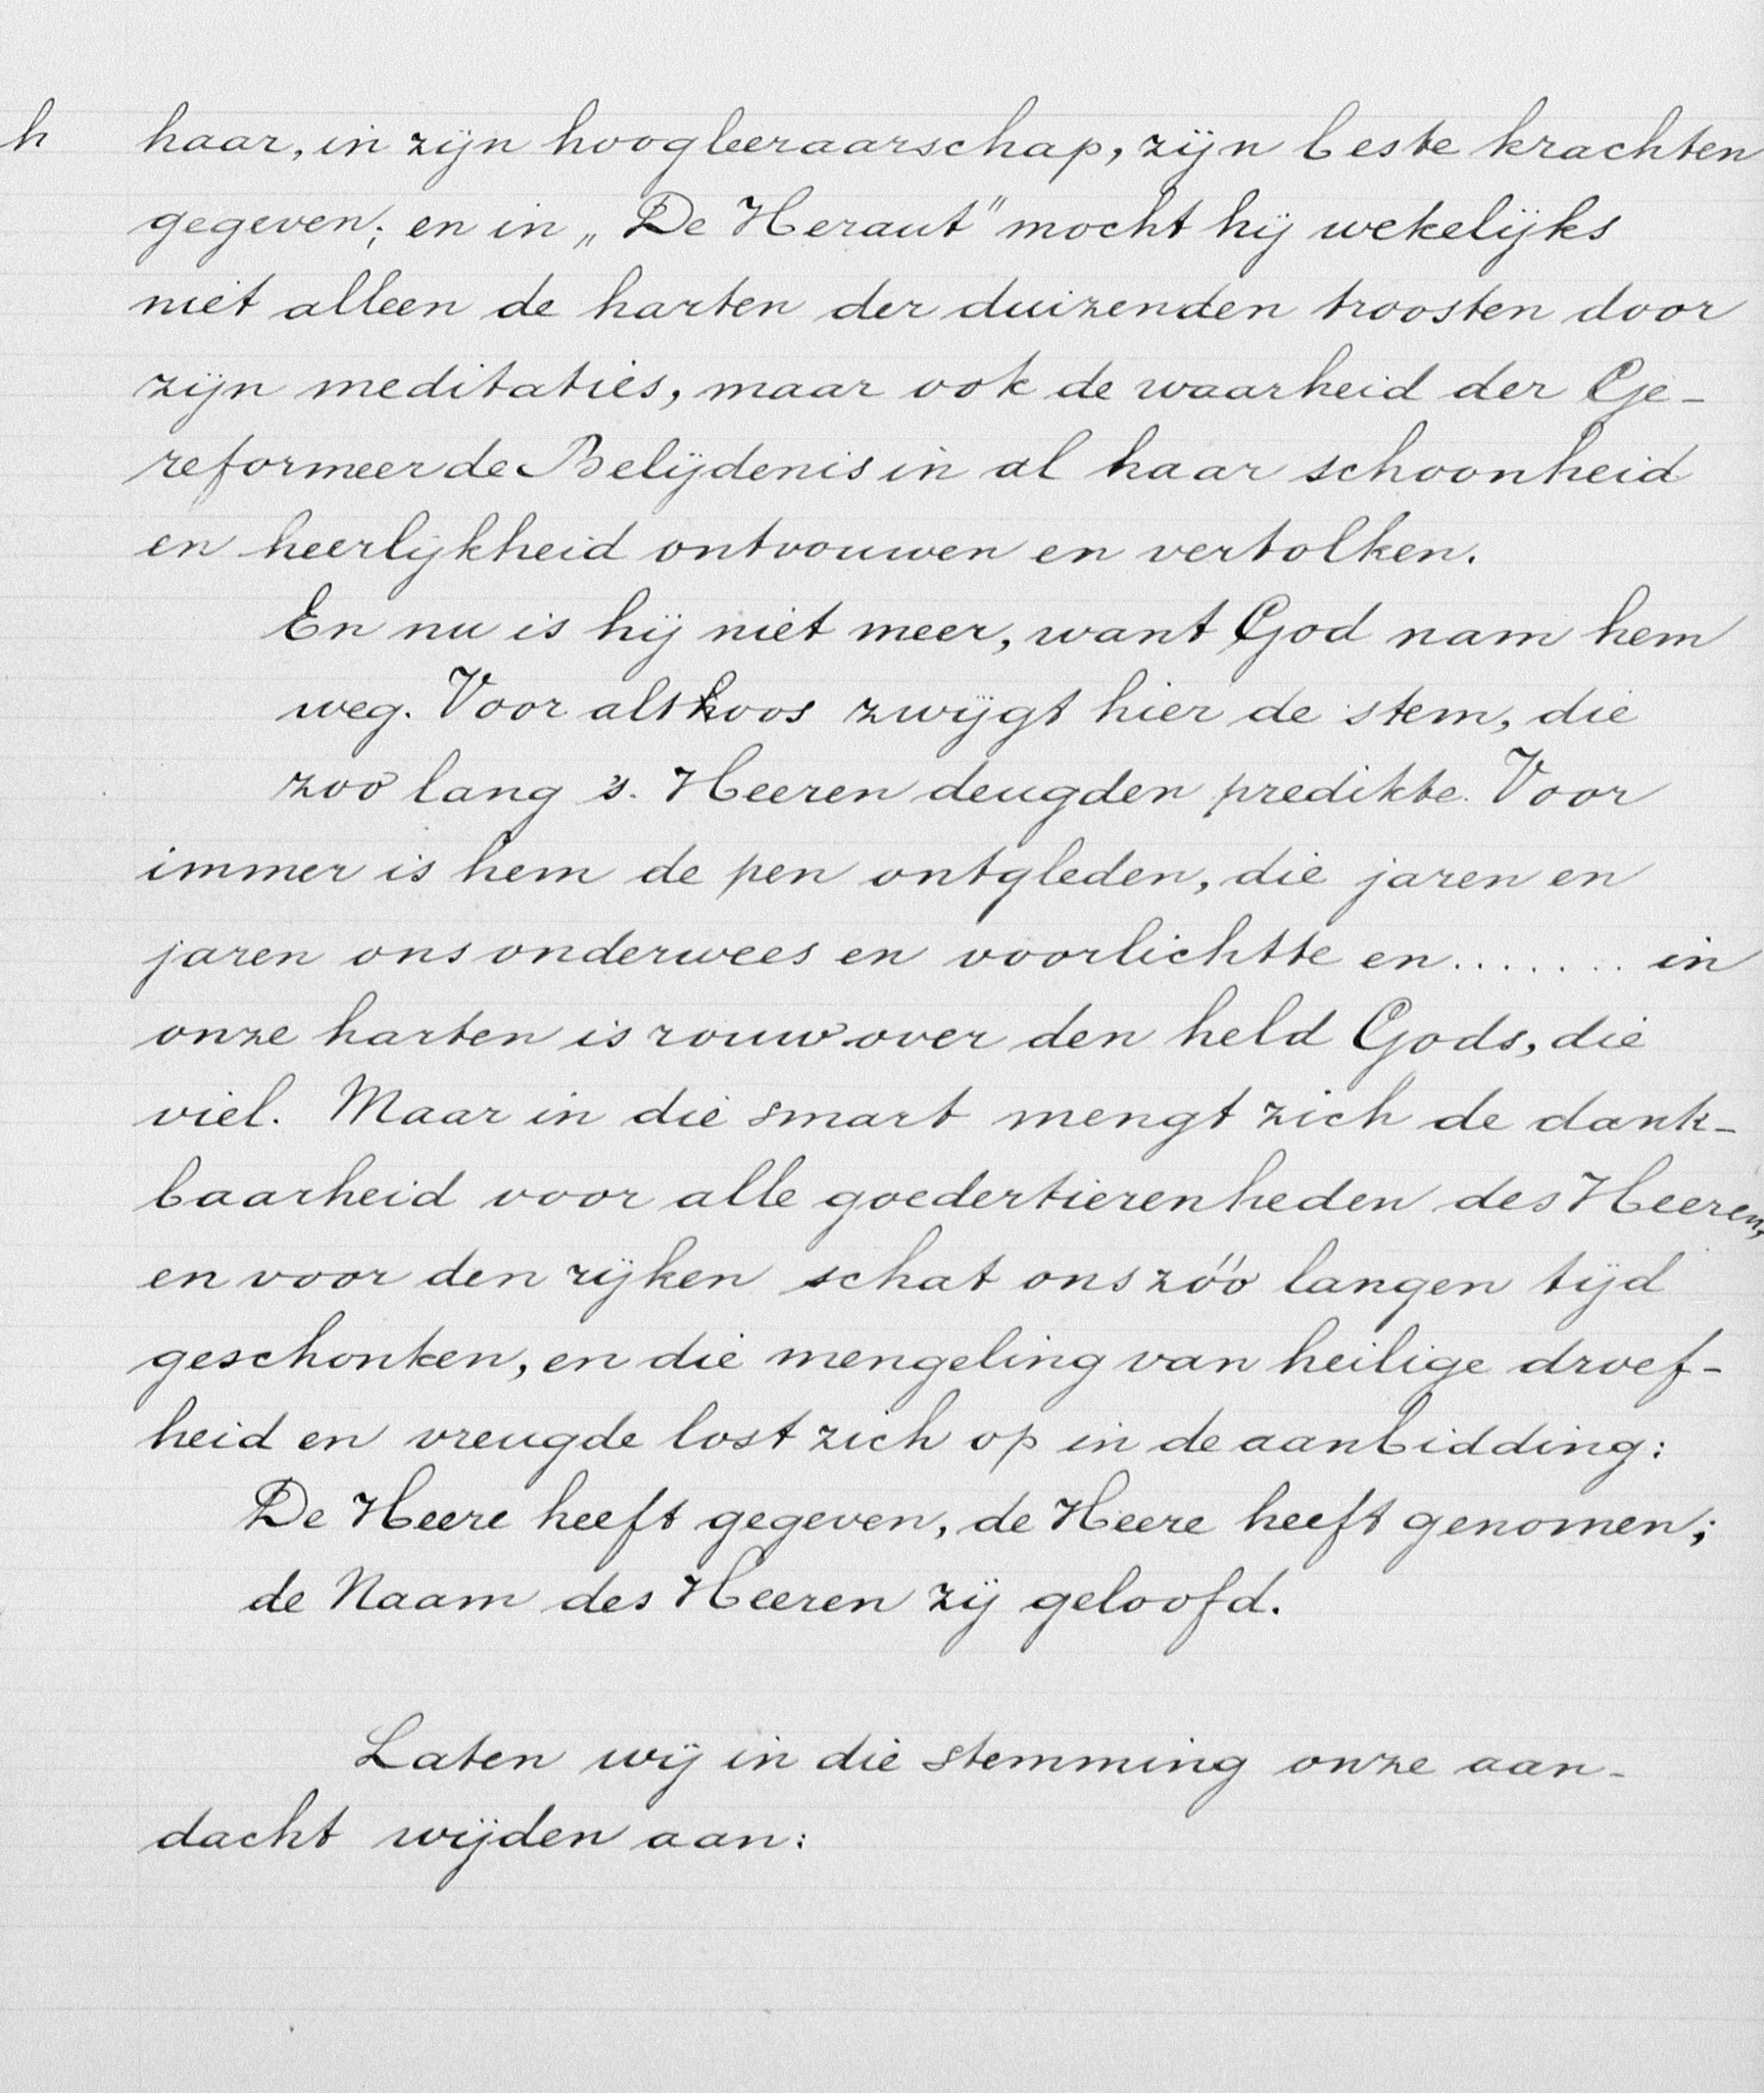 h haar, in zijn hoogleeraarschap, zijn beste krachten
gegeven; en in „De Heraut" mocht hij wekelijks
niet alleen de harten der duizenden troosten door
zijn meditaties, maar ook de waarheid der Ge-
reformeerde Belijdenis in al haar schoonheid
en heerlijkheid ontvouwen en vertolken.
En nu is hij niet meer, want God nam hem
weg. Voor altoos zwijgt hier de stem, die
zoo lang 's. Heeren deugden predikte. Voor
immer is hem de pen ontgleden, die jaren en
jaren ons onderwees en voorlichtte en....... in
onze harten is rouw over den held Gods, die
viel. Maar in die smart mengt zich de dank-
baarheid voor alle goedertierenheden des Heeren,
en voor den rijken schat ons zóó langen tijd
geschonken, en die mengeling van heilige droef-
heid en vreugde lost zich op in de aanbidding:
De Heere heeft gegeven, de Heere heeft genomen;
de Naam des Heeren zij geloofd.
Laten wij in die stemming onze aan-
dacht wijden aan: